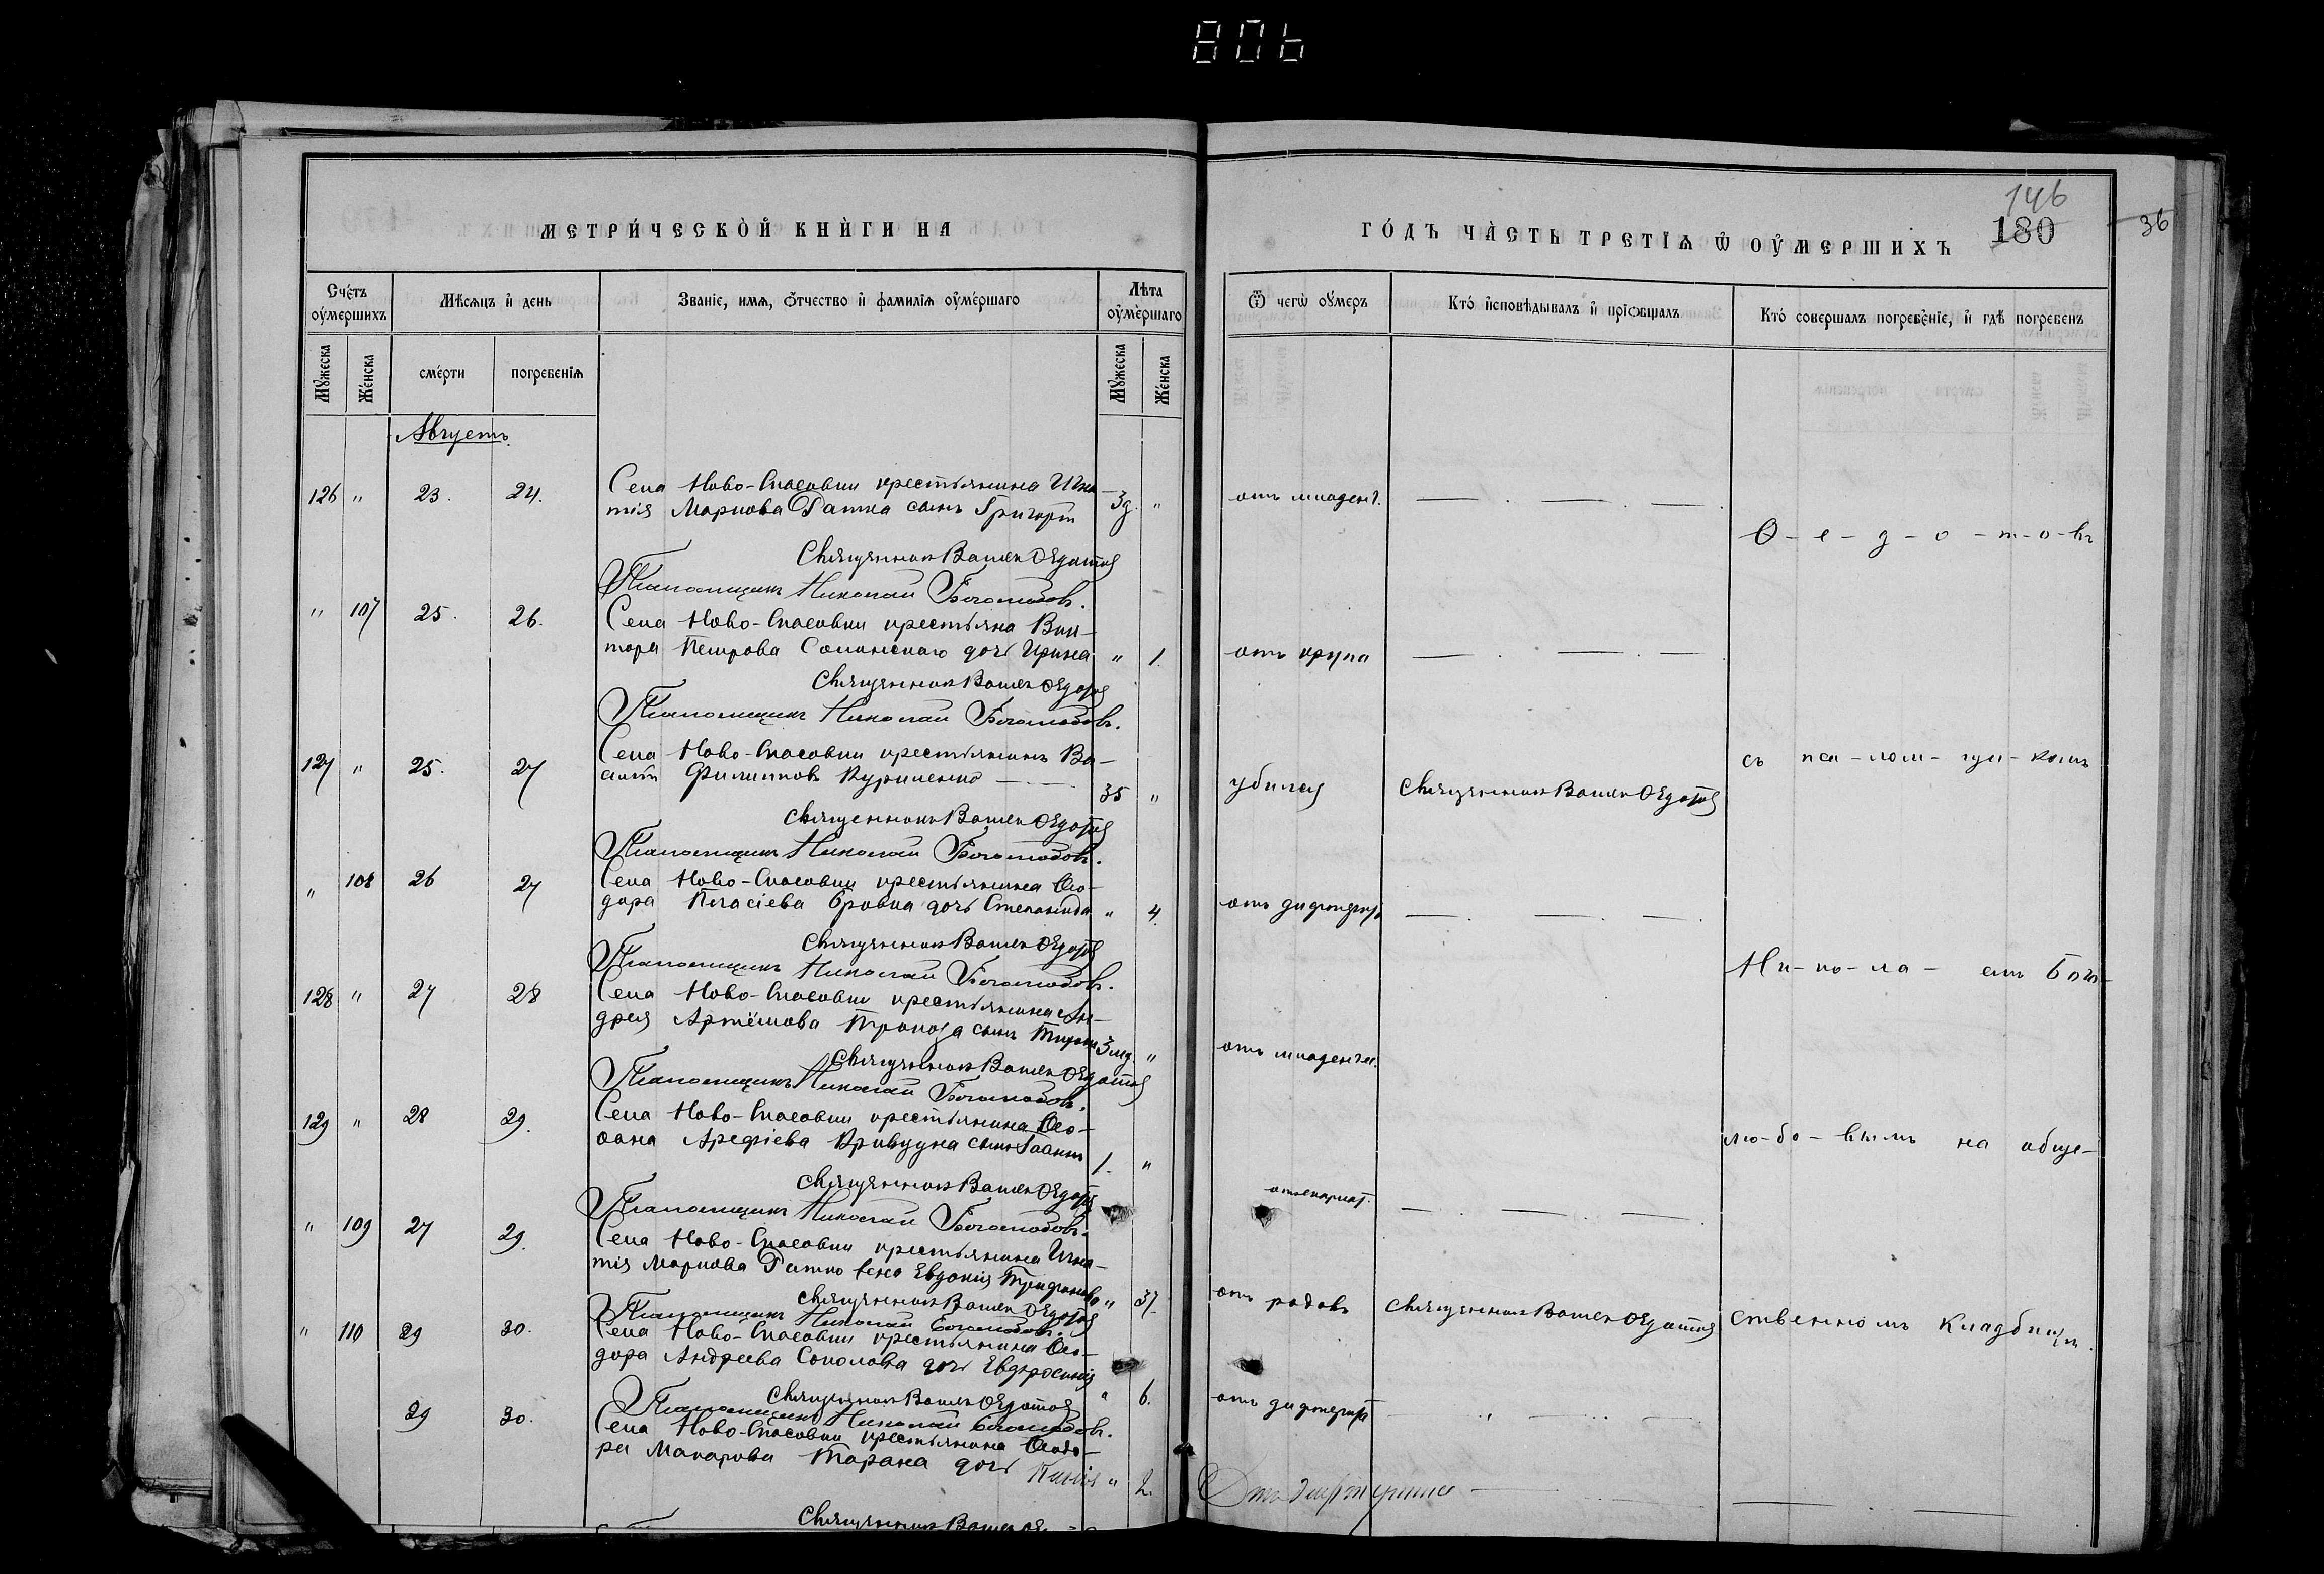 806
МЕТРИ́ЧЕСКОЙ КНИ́ГИ НА
ГО́ДЪ ЧА́СТЬ ТРЕТІѦ Ѿ ОУ҆МЕРШИХЪ
146
180
36
Сче́тъ оу҆ме́ршихъ
Мѣсѧцъ и҆ день
Званіе, имѧ, ѻ҆тчество и҆ фамиліѧ оу҆ме́ршаго
Лѣта оу҆ме́ршаго
Ѿ чегѡ̀ оу҆́меръ
Кто́ и҆сповѣ́дывалъ и҆ прїѡбща́лъ
Кто́ соверша́лъ погребе́нїе, и҆ гдѣ̀ погребе́нъ
Мꙋ́жеска
Же́нска
сме́рти
погребе́нїѧ
Мꙋ́жеска
Же́нска
Августъ.
126 " 23. 24. Села Ново-Спасовки крестьянина Игна
тія Маркова Ратка сынъ Григорій 3д. " отъ младенч.
Ѳ-е-д-о-т-о-въ
Священникъ Василій Ѳедотов
Псаломщикъ Николай Боголюбовъ.
" 107 25. 26. Села Ново-Спасовки крестьяна Вик-
тора Петрова Солинскаго дочь Ирина " 1. отъ крупа
Священникъ Василій Ѳедотов
Псаломщикъ Николай Боголюбовъ.
127 " 25. 27 Села Ново-Спасовки крестьянинъ Ва-
силій Филипповъ Куриленко 35 " убился Священникъ Василій Ѳедотов
съ пса-лом-щи-комъ
Священникъ Василій Ѳедотов
Псаломщикъ Николай Боголюбовъ.
" 108 26 27 Села Ново-Спасовки крестьянина Ѳео-
дора Власіева Бровка дочь Степанида " 4. отъ дифтерита
Священникъ Василій Ѳедотов
Псаломщикъ Николай Боголюбовъ.
Ни-ко-ла- емъ Бого-
128 " 27 28 Села Ново-Спасовки крестьянина Ан-
дрея Артёмова сынъ 3мд. " отъ младенч.
Священникъ Василій Ѳедотов
Псаломщикъ Николай Боголюбовъ.
129 " 28 29. Села Ново-Спасовки крестьянина Ѳео-
Арефіева Кривцуна сынъ Іоаннъ 1. "
лю-бо-вымъ на обще-
Священникъ Василій Ѳедотов
Псаломщикъ Николай Боголюбовъ.
" 109 27 29. Села Ново-Спасовки крестьянина Игна-
тія Маркова Ратко жена Евдокія Трифонова " 37. отъ родовъ Священникъ Василій Ѳедотов
ственномъ кладбищѣ.
Священникъ Василій Ѳедотов
Псаломщикъ Николай Боголюбовъ.
" 110 29 30. Села Ново-Спасовки крестьянина Ѳео-
дора Андреева Соколова дочь Евфросинія " 6. отъ дифтерита
Священникъ Василій Ѳедотов
Псаломщикъ Николай Боголюбовъ.
29 30. Села Ново-Спасовки крестьянина Ѳеодо-
ра Макарова Тарана дочь " 2. Отъ дифтерита
Священникъ